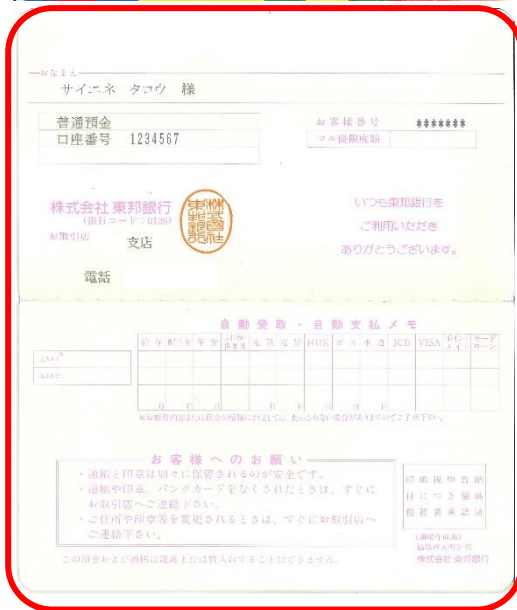 おなまえ
サイエネ タロウ 様
普通預金
口座番号 1234567
お客様番号 *******
マル優限度額
株式会社 東邦銀行
(銀行コード:0126)
お取引店 支店
電話
いつも東邦銀行を
ご利用いただき
ありがとうございます。
自動受取・自動支払メモ
給与 配当金 年金 電気 電話 NHK ガス 水道 JCB VISA カードローン
日 日 日 日 日 日
※お取引内容または預金の種類によりましては、表示されない場合がありますのでご了承下さい。
お客様へのお願い
・通帳と印章は別々に保管されるのが安全です。
・通帳や印章、バンクカードをなくされたときは、すぐに
お取引店へご連絡下さい。
・ご住所や印章等を変更されるときは、すぐにお取引店へ
ご連絡下さい。
この預金および通帳は譲渡または質入れすることはできません。
印紙税申告納
付につき福島
税務署承認済
株式会社 東邦銀行